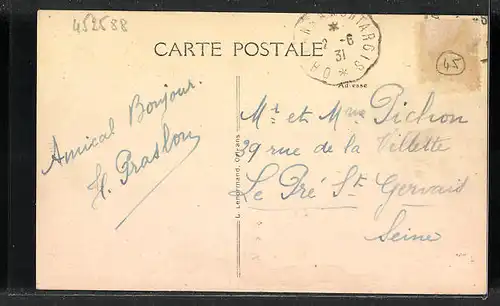 452588
CARTE POSTALE
MONTARGIS
2 -6
31
45
Adresse
Amical Bonjour.
H. Praslon
L. Lenormand, Orléans
Mr et Mme Pichon
29 rue de la Villette
Le Pré St Gervais
Seine